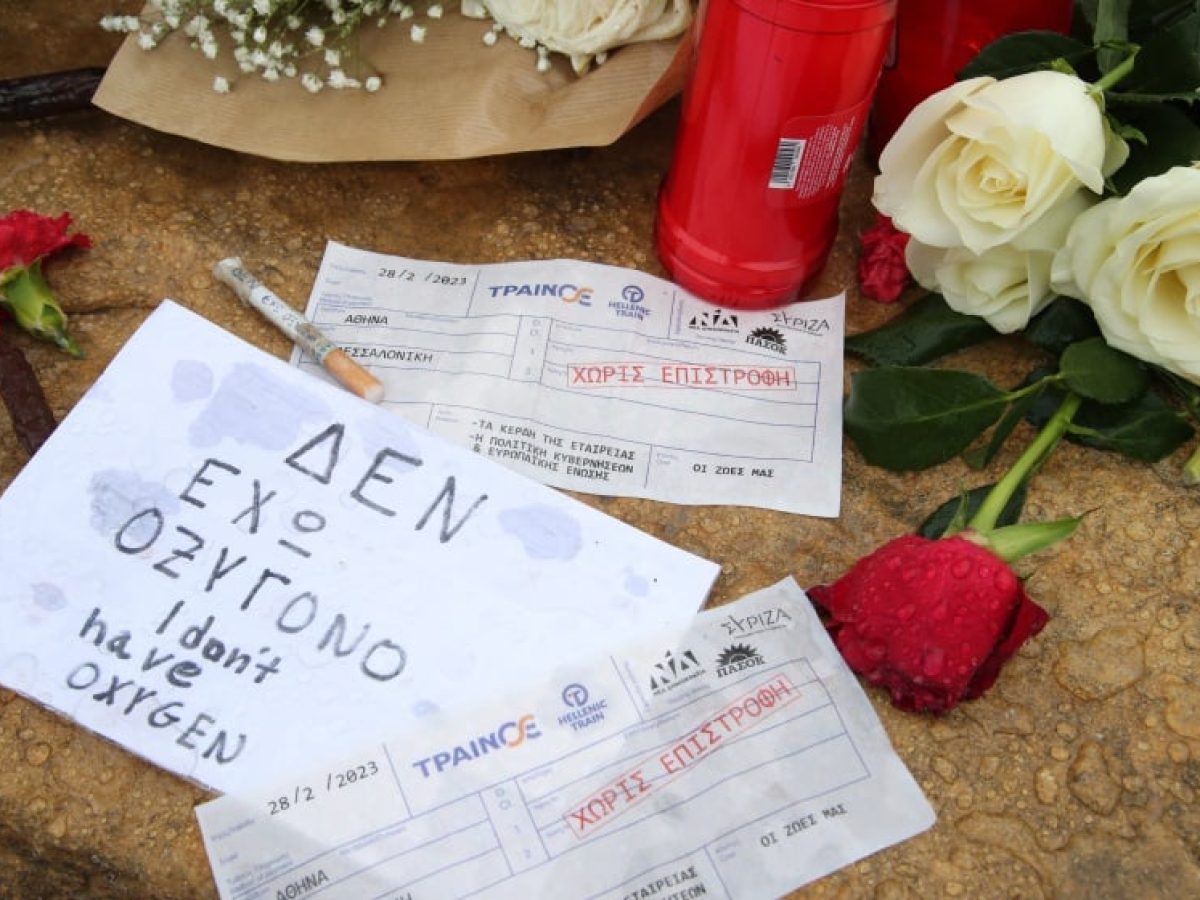 28/2 /2023
ΤΡΑΙΝΟΣΕ
HELLENIC
TRAIN
ΝΔ
ΝΕΑ ΔΗΜΟΚΡΑΤΙΑ
ΣΥΡΙΖΑ
ΠΑΣΟΚ
ΑΘΗΝΑ
ΘΕΣΣΑΛΟΝΙΚΗ
ΧΩΡΙΣ ΕΠΙΣΤΡΟΦΗ
-ΤΑ ΚΕΡΔΗ ΤΗΣ ΕΤΑΙΡΕΙΑΣ
-Η ΠΟΛΙΤΙΚΗ ΚΥΒΕΡΝΗΣΕΩΝ
& ΕΥΡΩΠΑΪΚΗΣ ΕΝΩΣΗΣ
ΟΙ ΖΩΕΣ ΜΑΣ
ΔΕΝ
ΕΧΩ
ΟΞΥΓΟΝΟ
I don't
have
OXYGEN
28/2 /2023
ΤΡΑΙΝΟΣΕ
HELLENIC
TRAIN
ΝΔ
ΝΕΑ ΔΗΜΟΚΡΑΤΙΑ
ΣΥΡΙΖΑ
ΠΑΣΟΚ
ΧΩΡΙΣ ΕΠΙΣΤΡΟΦΗ
ΑΘΗΝΑ
ΟΙ ΖΩΕΣ ΜΑΣ
ΕΤΑΙΡΕΙΑΣ